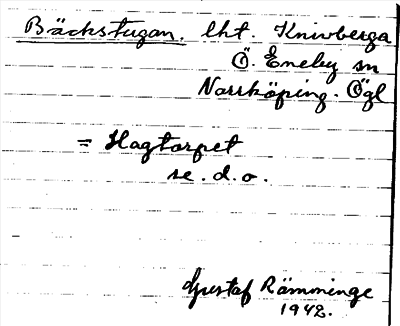 Bäckstugan. lht. Knivberga
Ö. Eneby sn
Norrköping. Ögl
= Hagtorpet
se. d. o.
Gustaf Rämminge
1942.